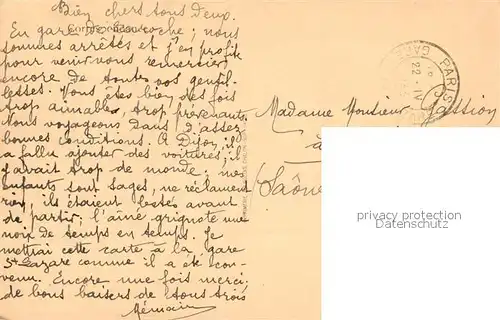 Bien chers tous deux.
En gare de Laroche; nous
sommes arrêtés et j'en profite
pour venir vous remercier
encore de toutes vos gentil-
lesses. Vous êtes bien des fois
trop aimables, trop prévenants.
Nous voyageons dans d'assez
bonnes conditions. A Dijon, il
a fallu ajouter des voitures; il
y avait trop de monde; mes
enfants sont sages, ne réclament
rien, ils étaient lestés avant
de partir; l'aîné grignote une
noix de temps en temps. Je
mettrai cette carte à la gare
St Lazare comme il a été con-
venu. Encore une fois merci,
de bons baisers de tous trois
PARIS
22
Madame Monsieur Gassion
à
Saône
privacy protection
Datenschutz